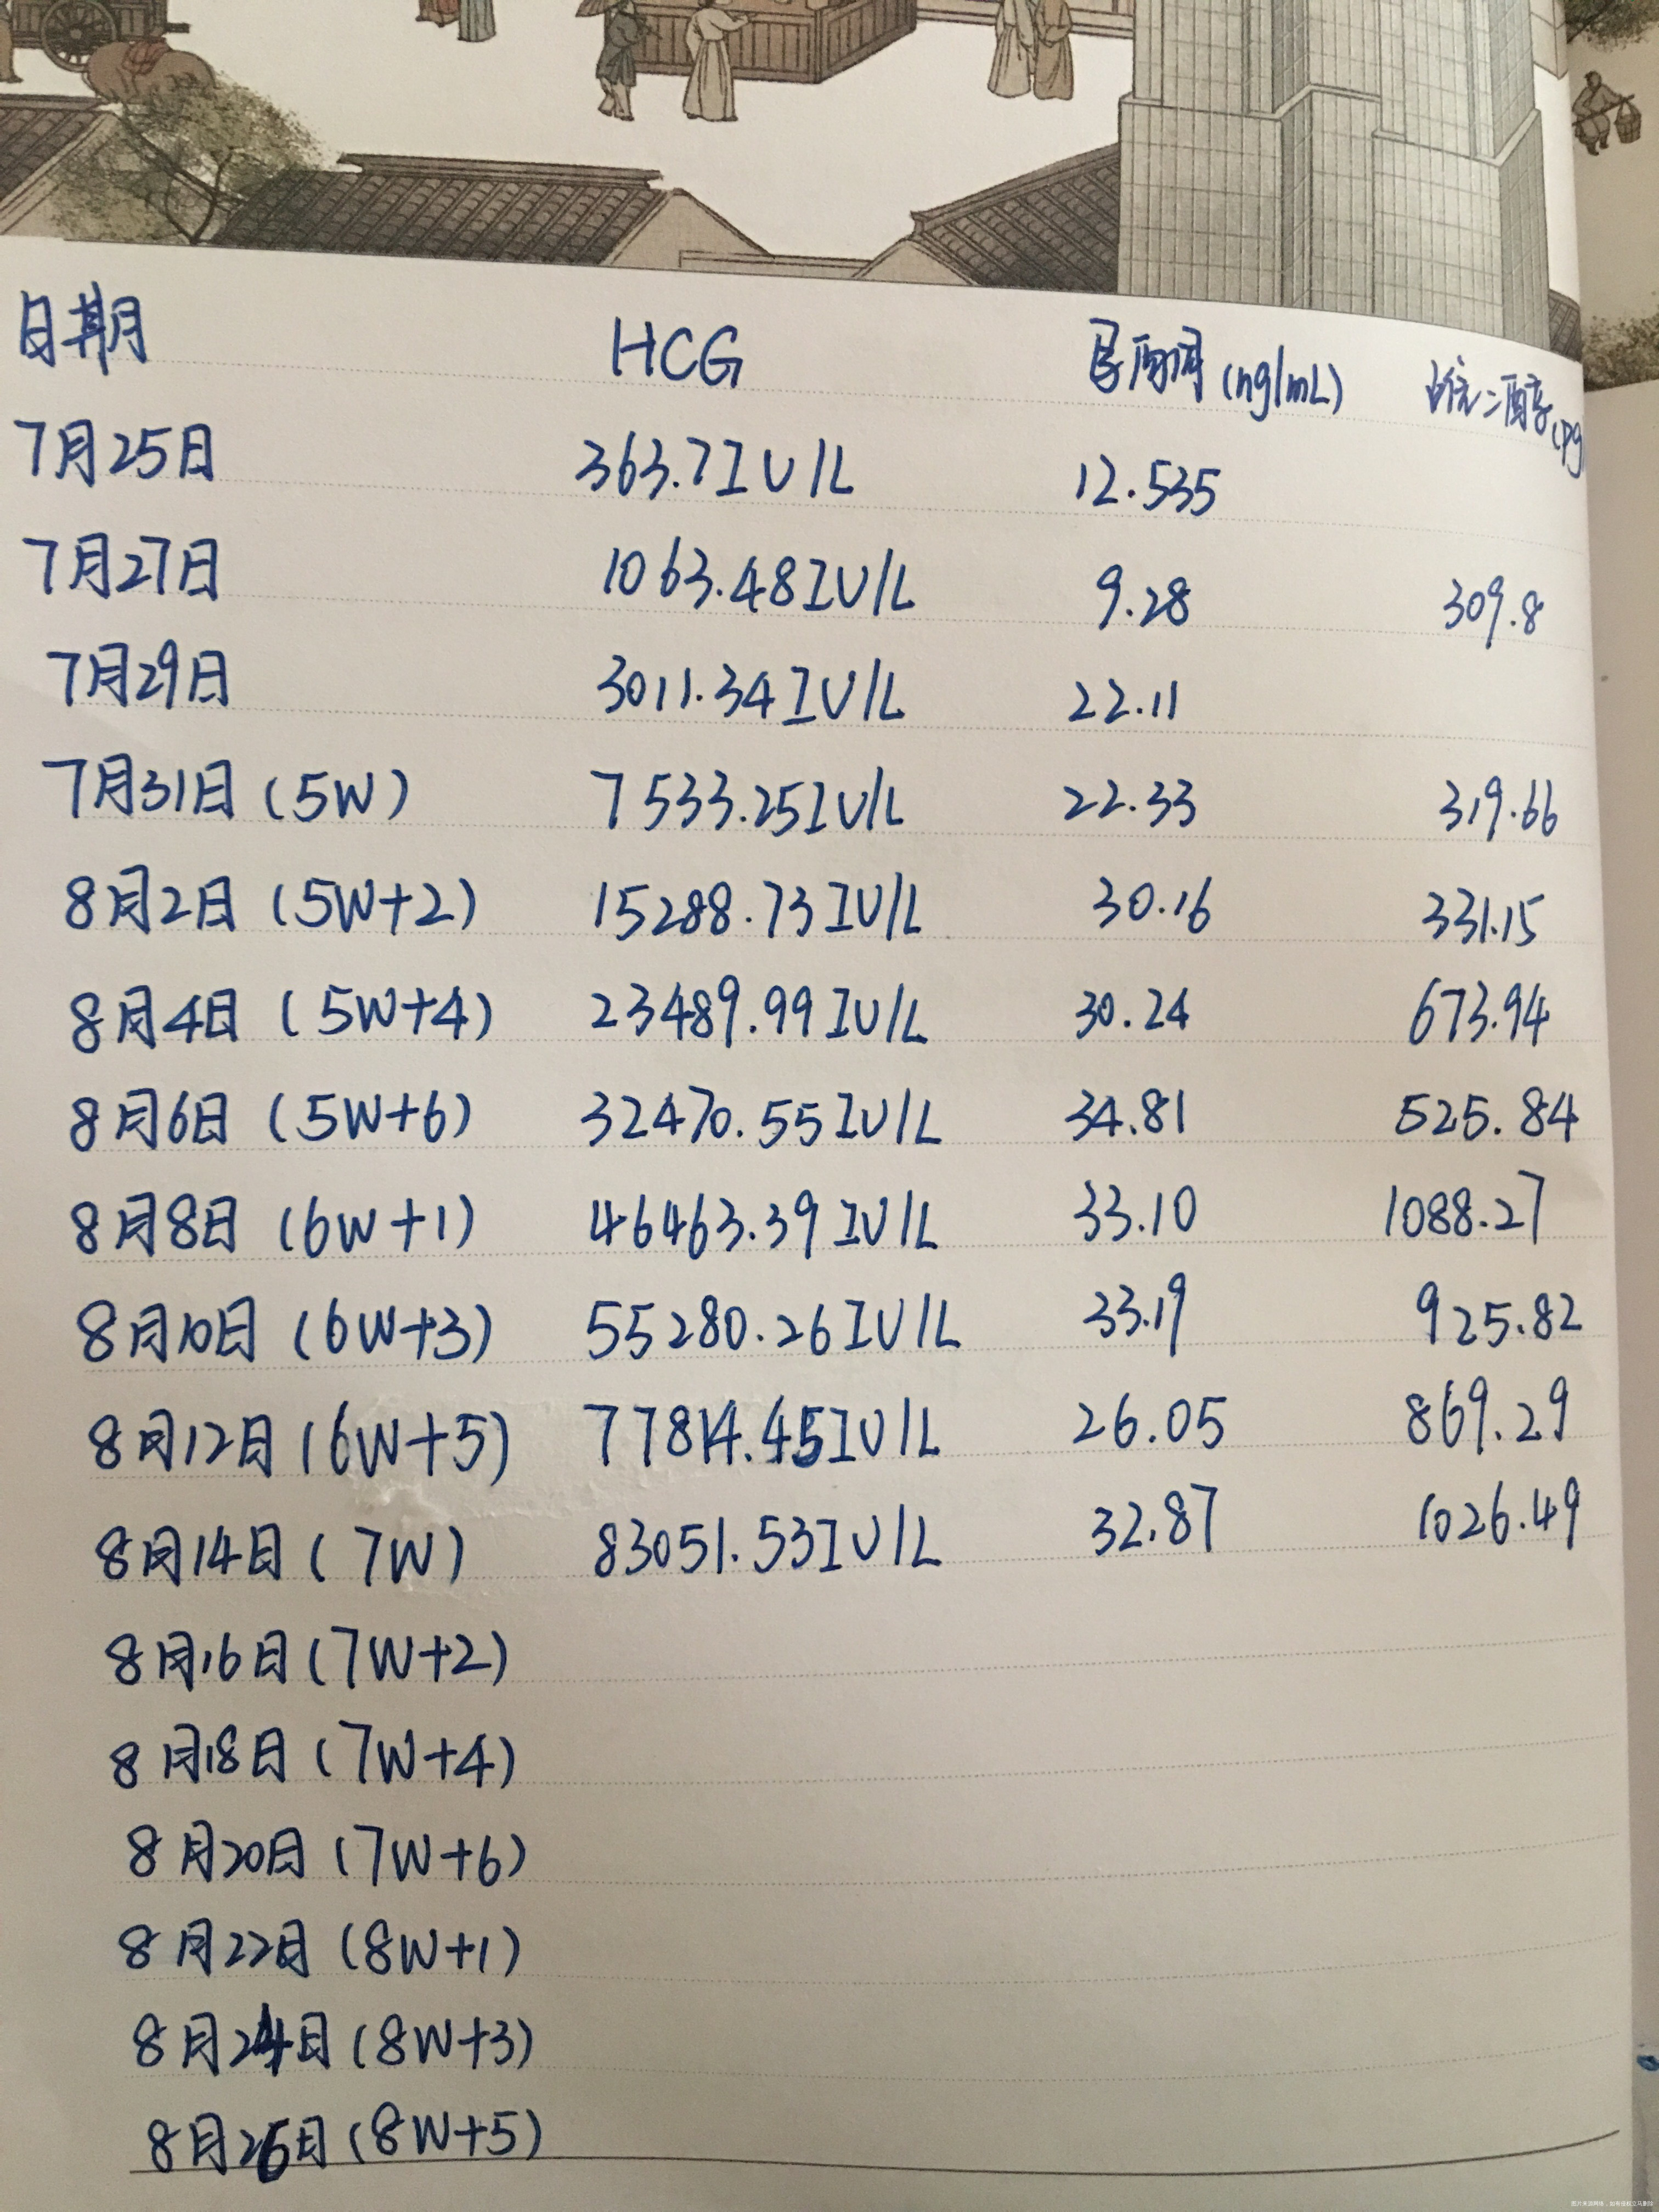 日期 HCG 孕酮(ng/mL) 雌二醇(pg
7月25日 363.7IU/L 12.535
7月27日 1063.48IU/L 9.28 309.8
7月29日 3011.34IU/L 22.11
7月31日(5W) 7533.25IU/L 22.33 319.66
8月2日(5W+2) 15288.73IU/L 30.16 331.15
8月4日(5W+4) 23489.99IU/L 30.24 673.94
8月6日(5W+6) 32470.55IU/L 34.81 525.84
8月8日(6W+1) 46463.39IU/L 33.10 1088.27
8月10日(6W+3) 55280.26IU/L 33.19 925.82
8月12日(6W+5) 77814.45IU/L 26.05 869.29
8月14日(7W) 83051.53IU/L 32.87 1026.49
8月16日(7W+2)
8月18日(7W+4)
8月20日(7W+6)
8月22日(8W+1)
8月24日(8W+3)
8月26日(8W+5)
图片来源网络,如有侵权立马删除